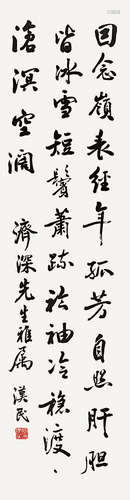 回念嶺表經年孤芳自照肝膽
皆冰雪短鬢蕭疏衫袖冷穩渡、
滄溟空闊
濟深先生雅屬 漢民